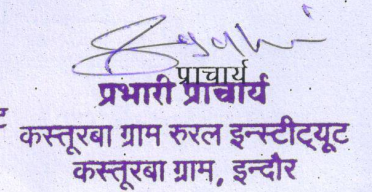 प्राचार्य
प्रभारी प्राचार्य
कस्तूरबा ग्राम रुरल इन्स्टीट्यूट
कस्तूरबा ग्राम, इन्दौर